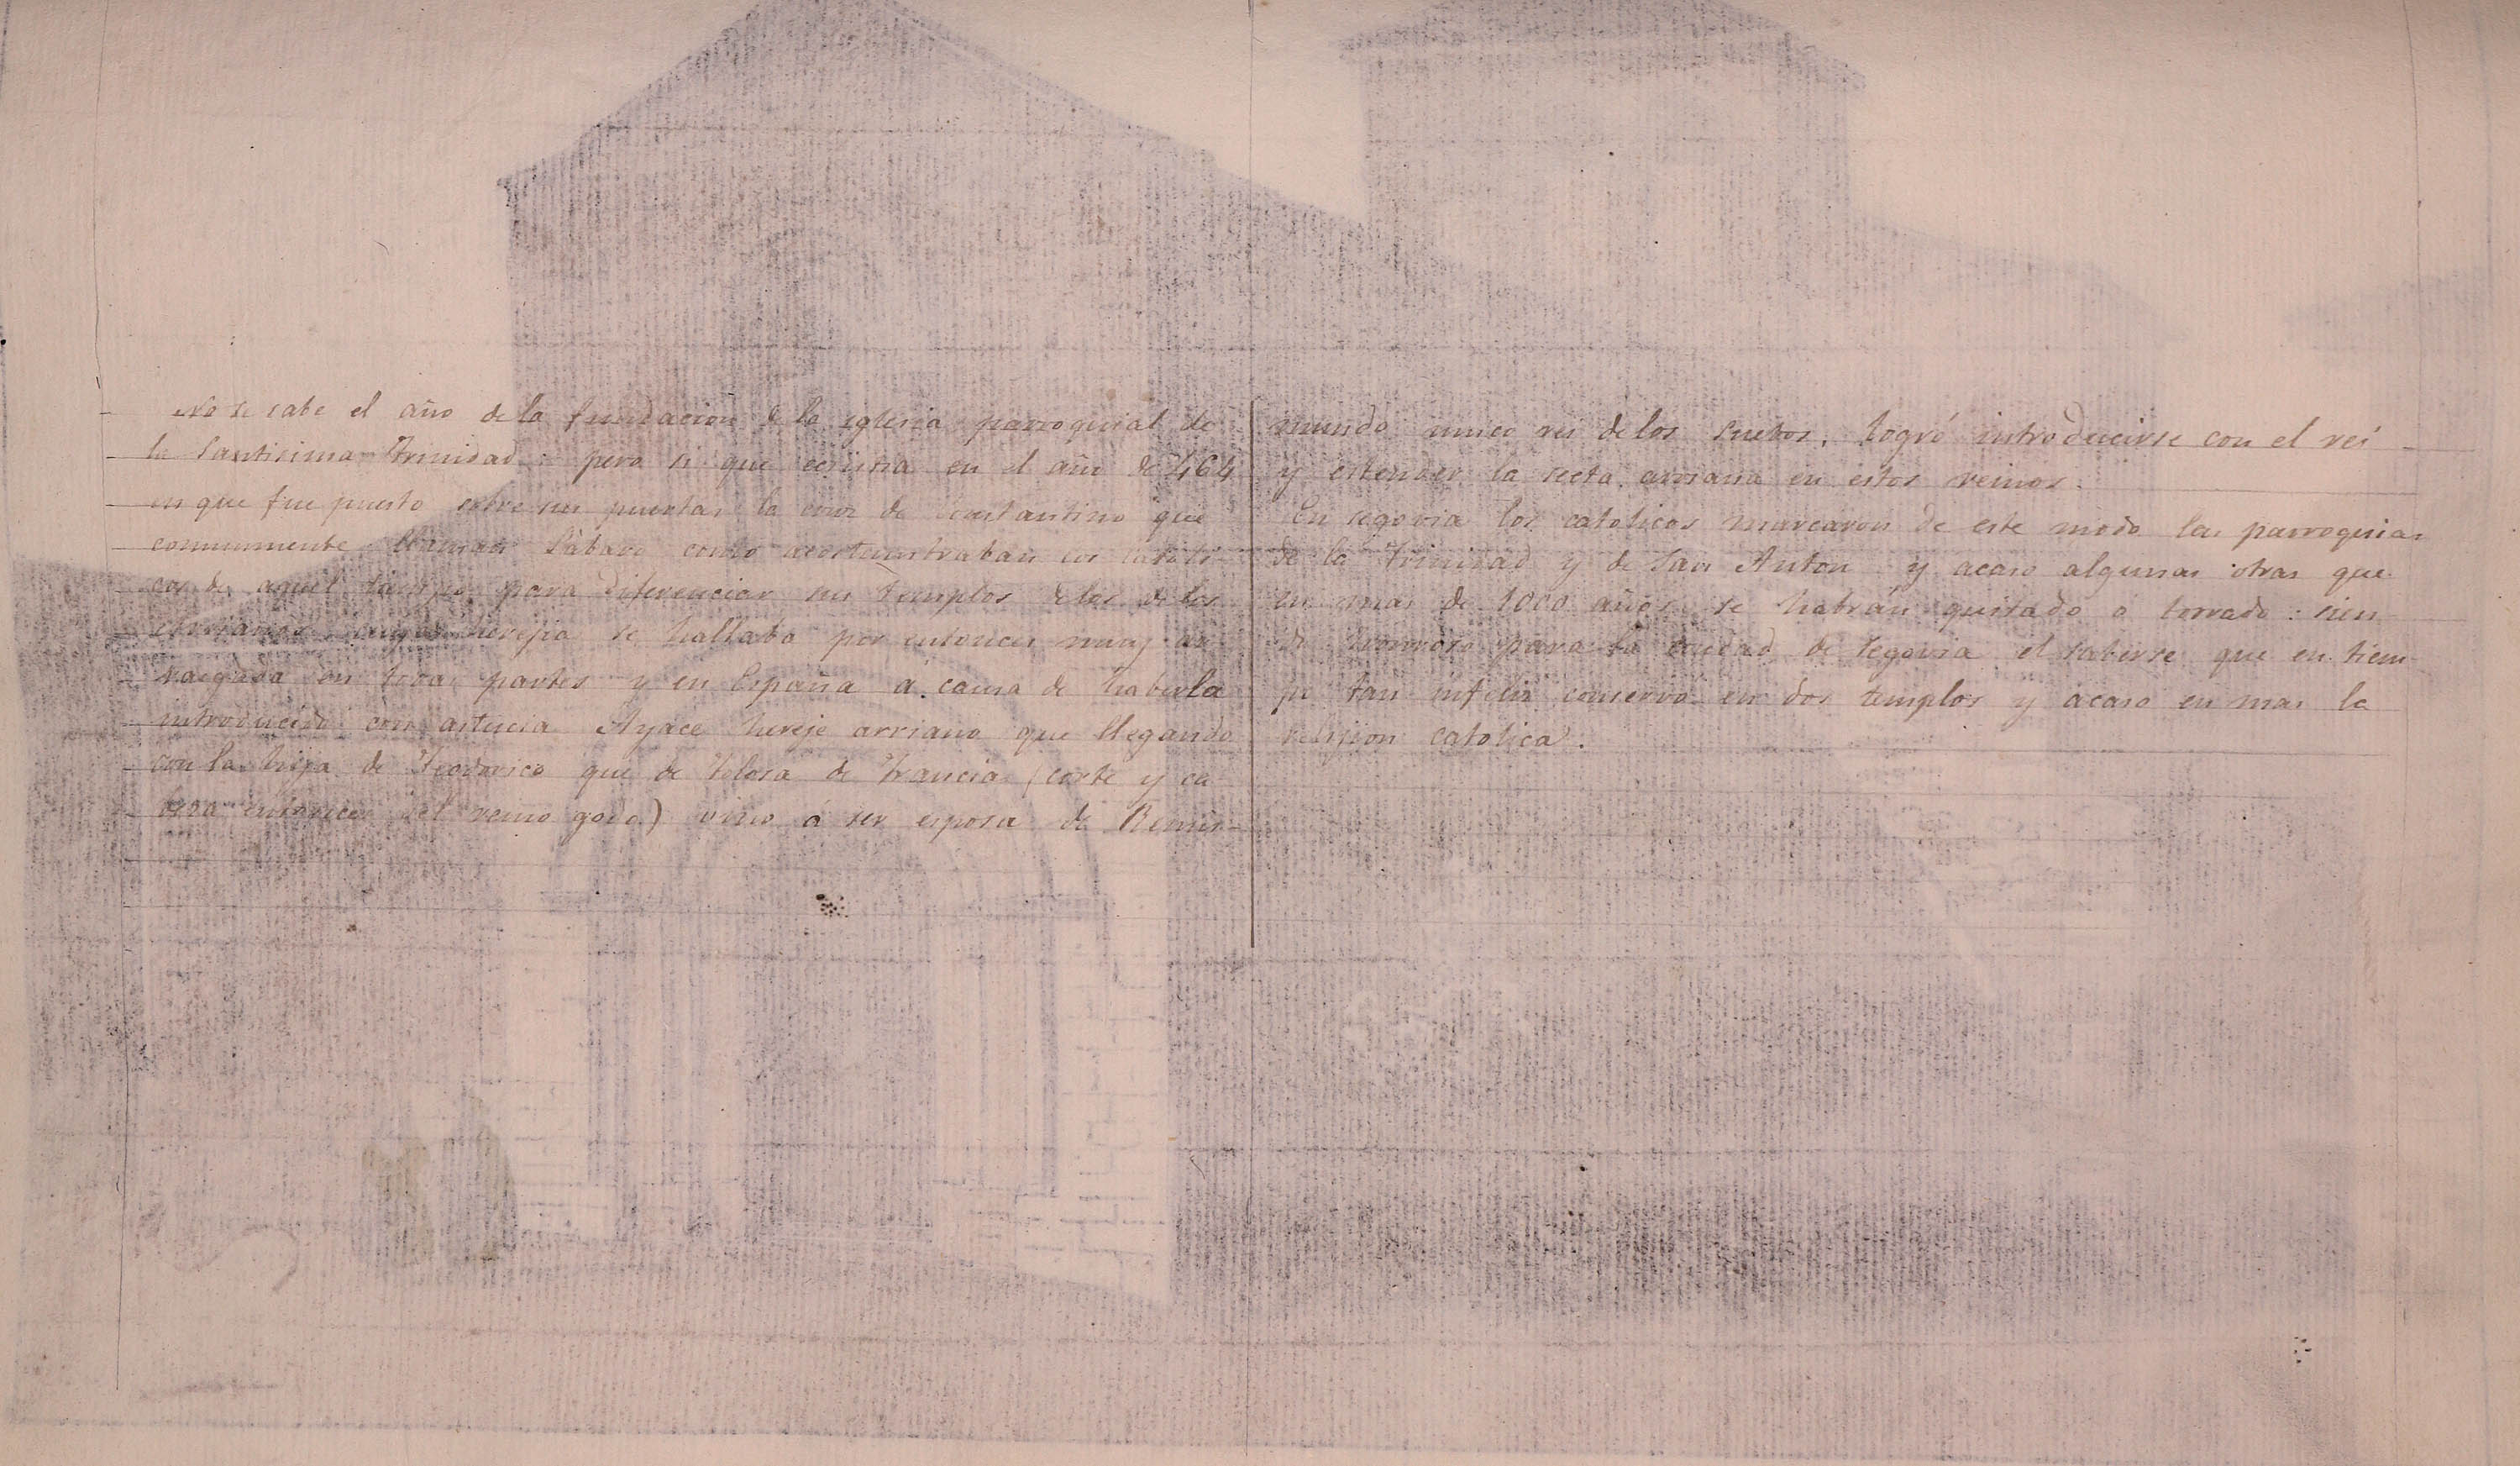 No se sabe el año de la fundacion de la iglesia parroquial de
la Santisima Trinidad: pero si que ecsistia en el año de 464
en que fue puesto sobre sus puertas la cruz de Constantino que
comunmente llaman Lábaro como acostumbraban los catoli-
cos de aquel tiempo para diferenciar sus templos de los de los
Arrianos cuya herejia se hallaba por entonces muy ar-
raigada en todas partes y en España á causa de haberla
introducido con astucia Ayace hereje arriano que llegando
con la hija de Teodorico que de Tolosa de Francia (corte y ca-
beza entonces del reino godo) vino á ser esposa de Remis-
mundo unico rei de los Suebos, logró introducirse con el rei
y estender la secta arriana en estos reinos.
En Segovia los catolicos marcaron de este modo las parroquias
de la Trinidad y de San Anton y acaso algunas otras que
en mas de 1000 años se habrán quitado o borrado: sien-
do honroso para la ciudad de Segovia el saberse que en tiem-
po tan infeliz conservó en dos templos y acaso en mas la
relijion catolica.